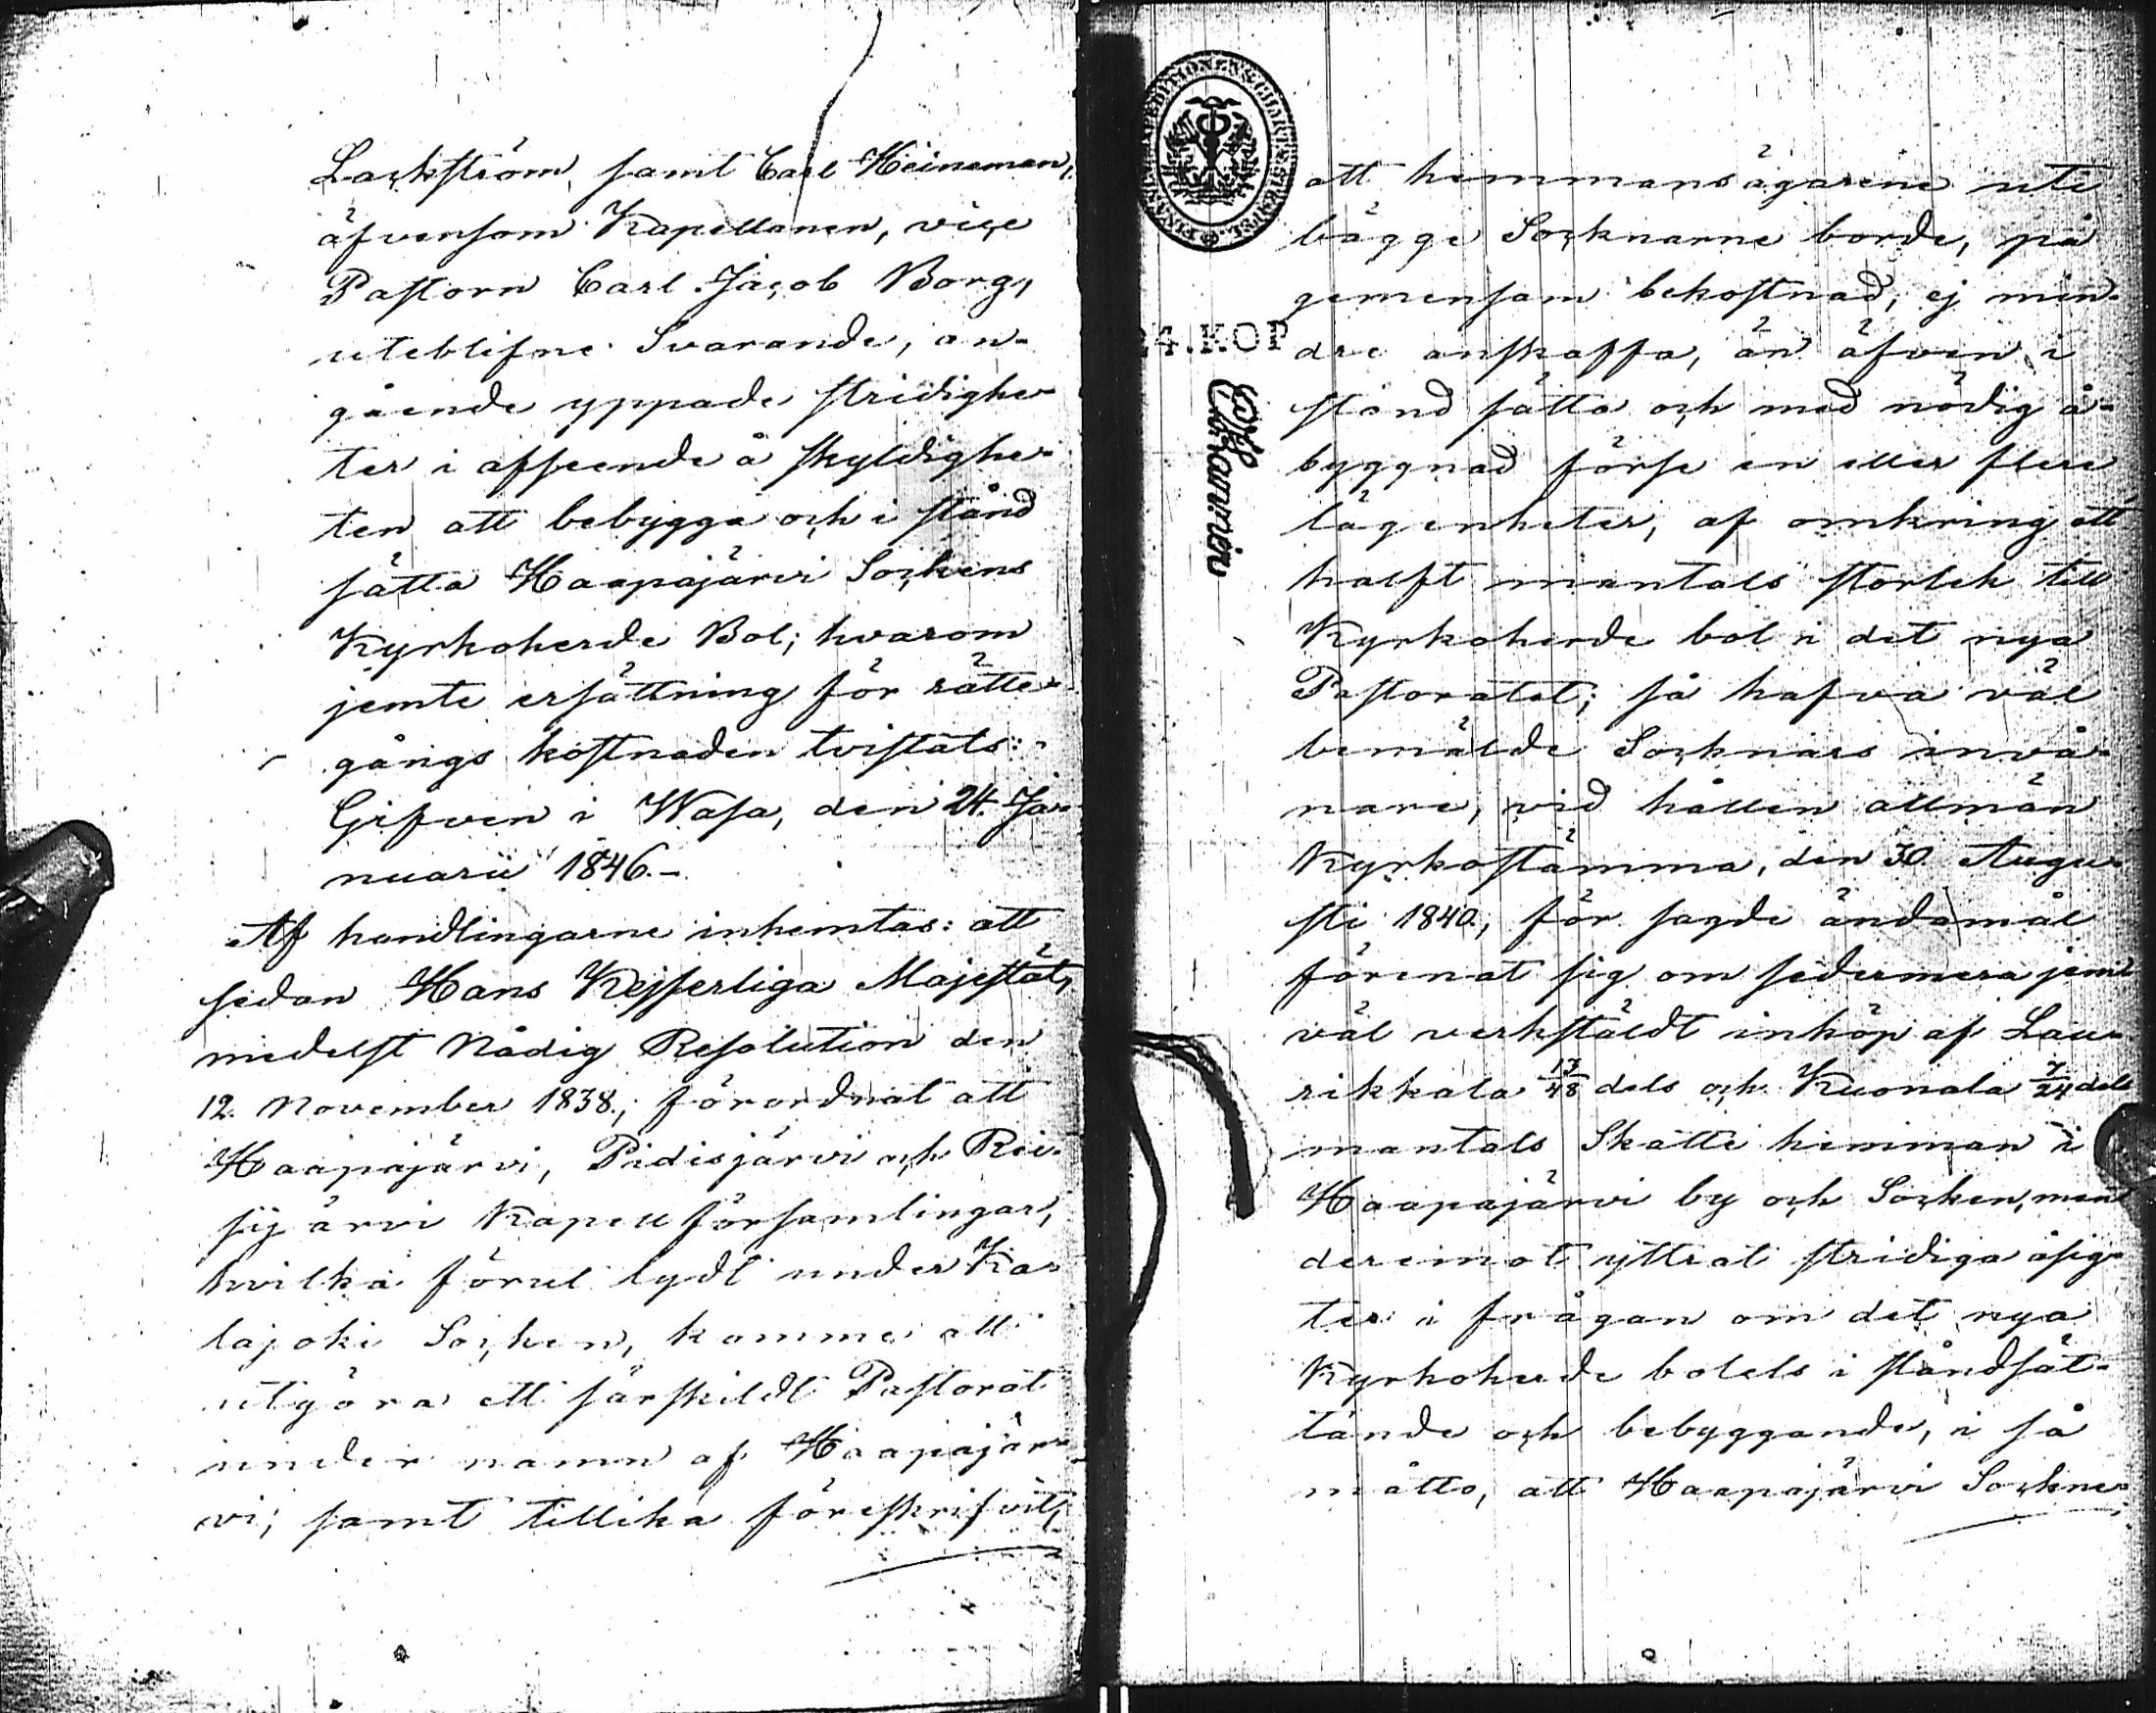 Lackström, samt Carl Heineman,
äfvensom Kapellanen, vice
Pastorn Carl Jacob Borg,
uteblifne Svarande, an-
gående yppade stridighe-
ter i afseende å skyldighe-
ten att bebygga och i stånd
sätta Haapajärvi Sockens
Kyrkoherde Bol; hvarom
jemte ersättning för rätte-
gångs kostnaden tvistats:
Gifven i Wasa, den 24. Ja-
nuarii 1846.-
Af handlingarne inhemtas: att
sedan Hans Kejserliga Majestät,
medelst Nådig Resolution den
12. November 1838., förordnat att
Haapajärvi, Pidisjärvi och Rei-
sijärvi Kapell församlingar,
hvilka förut lydt under Ka-
lajoki Socken, komme att
utgöra ett särskildt Pastorat
under namn af Haapajär-
vi; samt tillika föreskrifvit,
FINANS EXPEDITIONENS CHARTÆ STÄMPEL
24. KOP
att hemmansägarene uti
bägge Socknarne borde, på
gemensam bekostnad, ej min-
dre anskaffa, än äfven i
stånd sätta och med nödig å-
byggnad förse en eller flere
lägenheter, af omkring ett
halft mantals storlek till
Kyrkoherde bol i det nya
Pastoratet; så hafva väl
bemälde Socknars invå-
nare, vid hållen allmän
Kyrkostämma, den 30 Augu-
sti 1840., för sagde ändamål
förenat sig om sedermera jem
väl verkstäldt inköp af Lau-
rikkala 13/48 dels och Kuonala 7/24 dels
mantals Skatte hemman i
Haapajärvi by och Socken, men
deremot yttrat stridiga åsig-
ter i frågan om det nya
Kyrkoherde bolets i ståndsät-
tande och bebyggande, i så
måtto, att Haapajärvi Sockne-